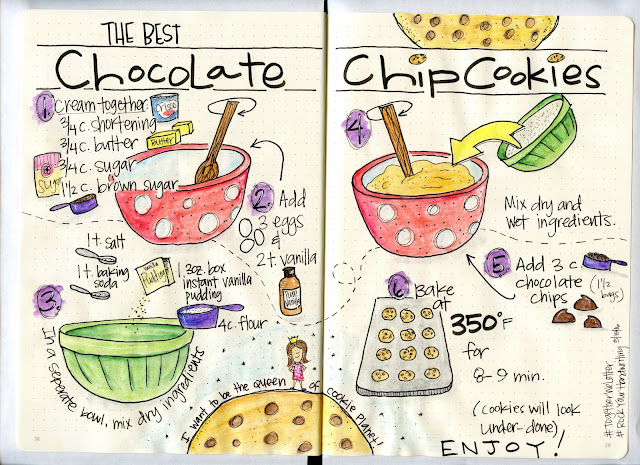 THE BEST
Chocolate
Chip Cookies
1. Cream together:
3/4 c. shortening
3/4 c. butter
3/4 c. sugar
1 1/2 c. brown sugar
Crisco
Butter
Sugar
2. Add
3 eggs
&
2 t. vanilla
Vanilla
1 t. salt
1 t. baking
soda
Vanilla
Pudding
1 3oz. box
instant vanilla
pudding
4 c. flour
3.
In a seperate bowl, mix dry ingredients
I want to be the queen of cookie planet!
4.
Mix dry and
wet ingredients.
5. Add 3 c
chocolate
chips
(1 1/2
bags)
6. Bake
at
350°F
for
8-9 min.
(cookies will look
under-done)
ENJOY!
#TogetherWeLetter
#RockYourHandwriting